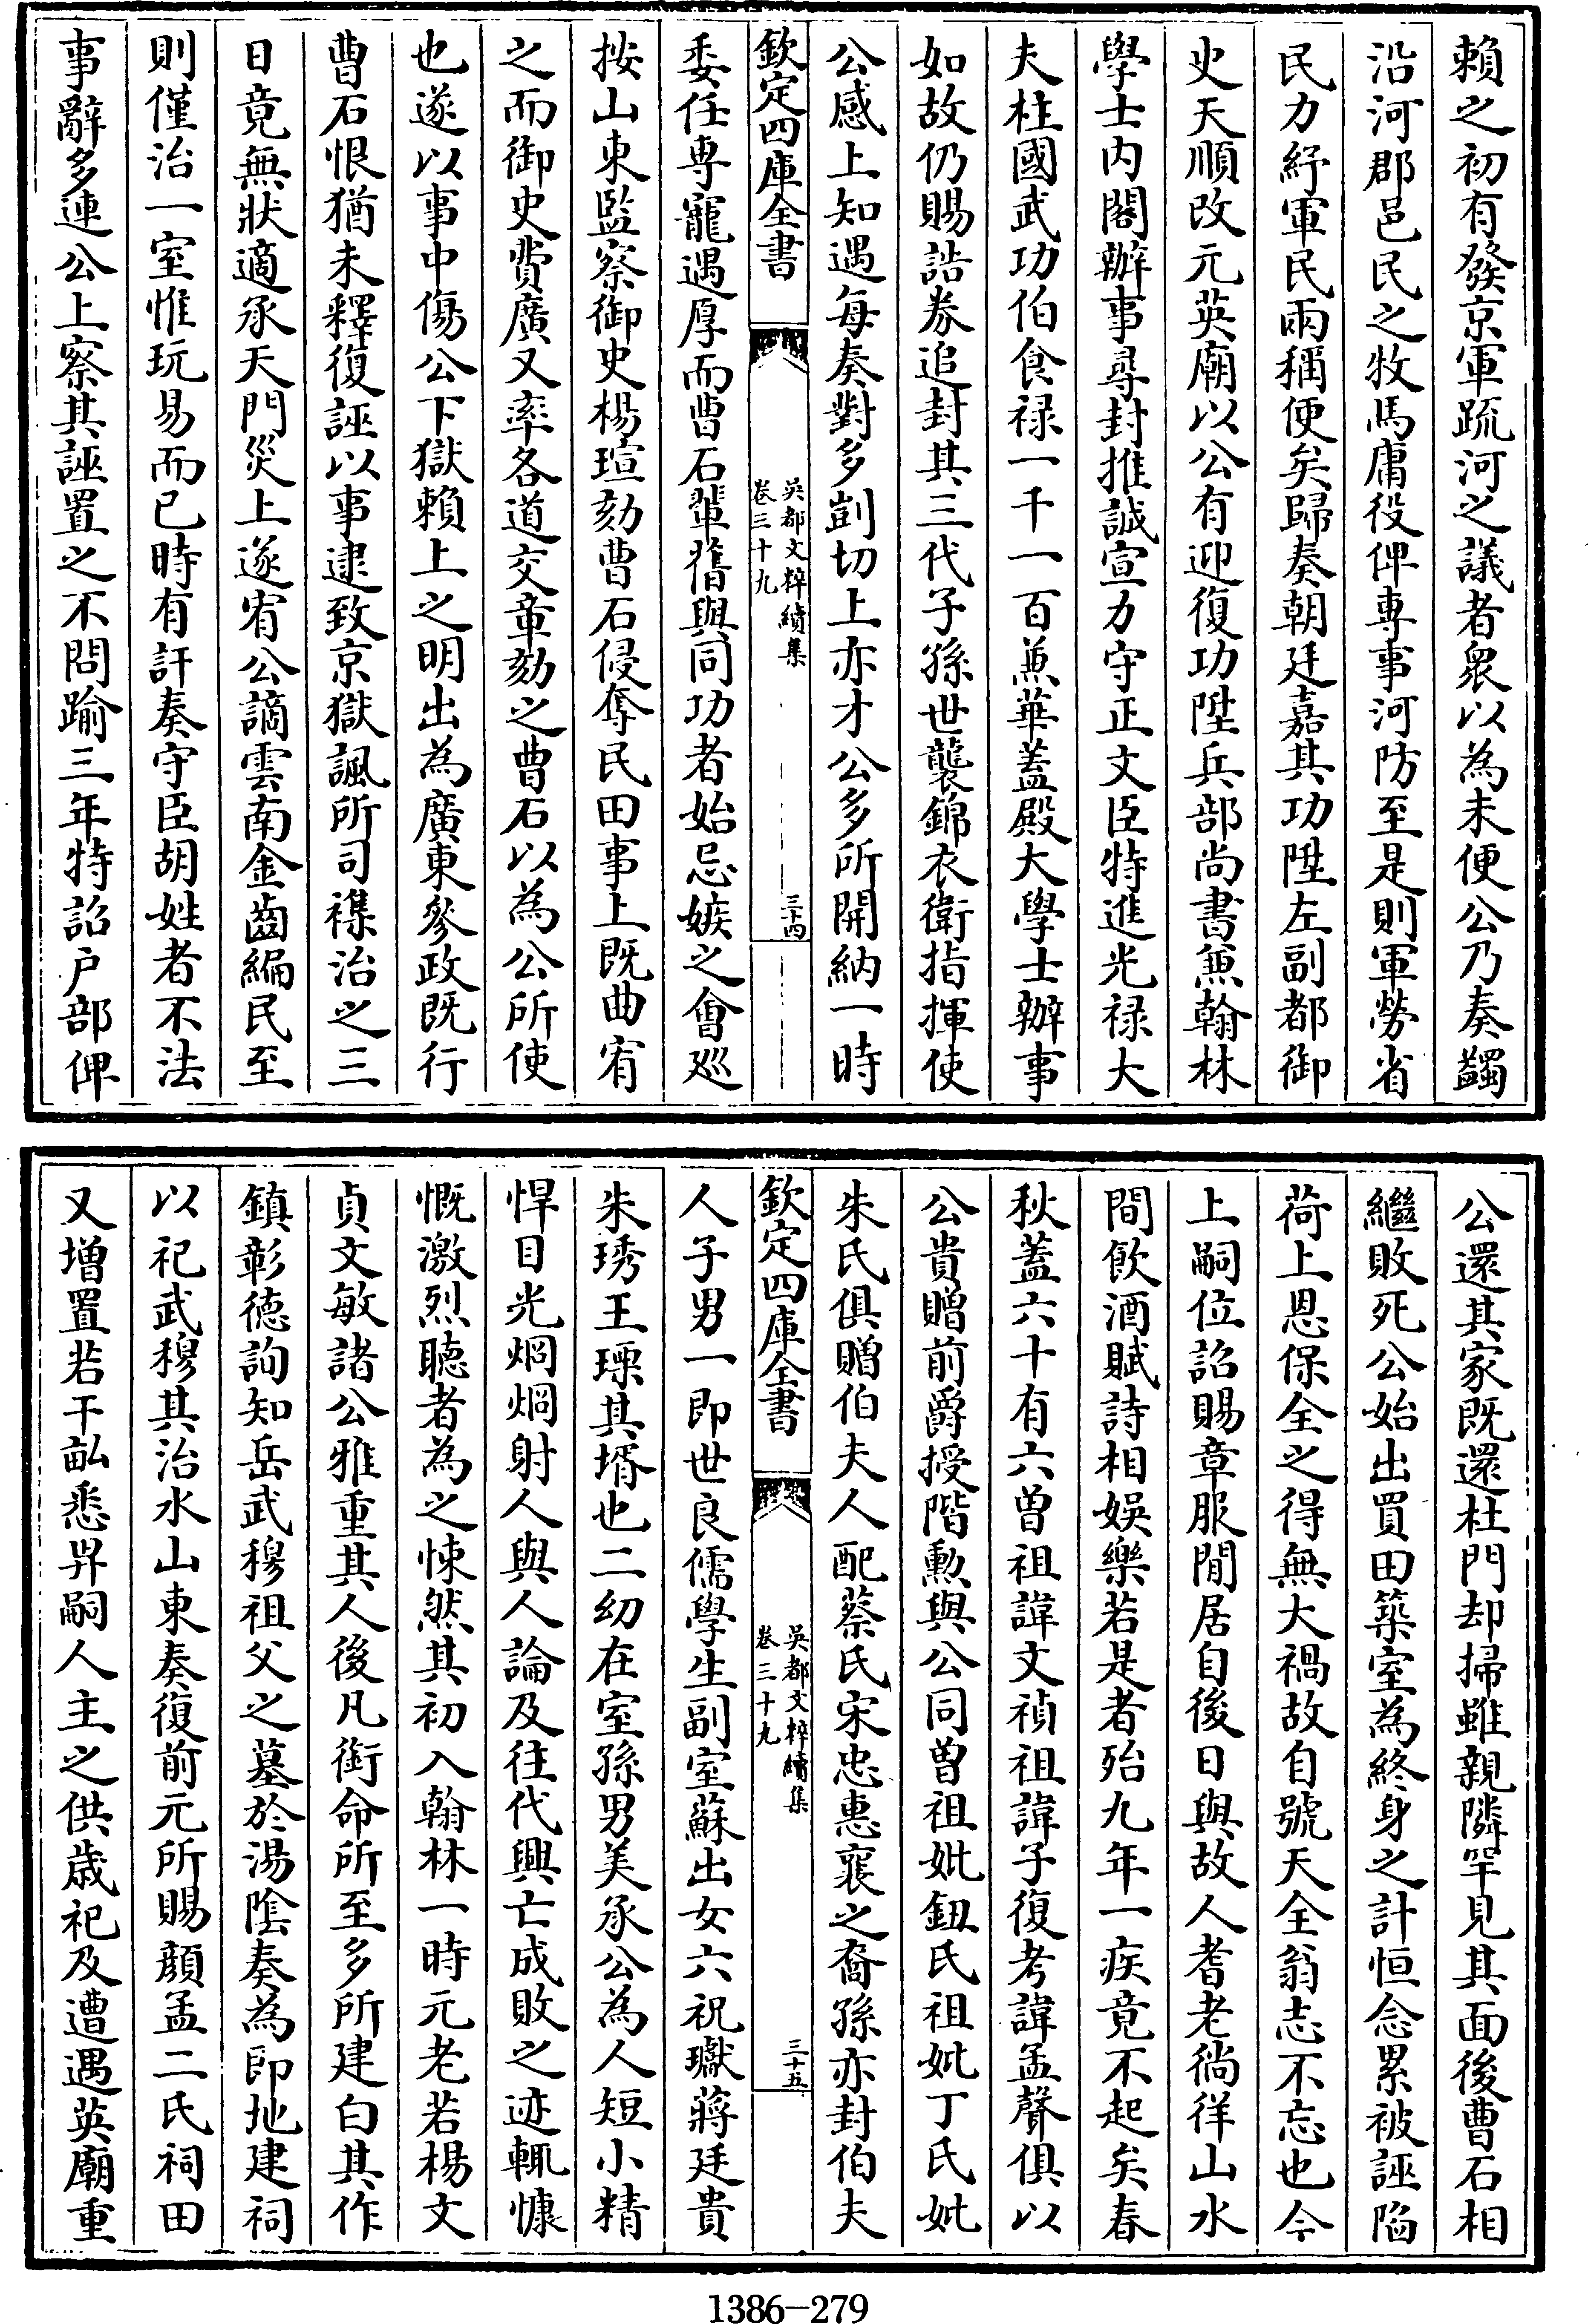 賴之初有發京軍疏河之議者衆以為未便公乃奏蠲
沿河郡邑民之牧馬庸役俾專事河防至是則軍勞省
民力紓軍民兩稱便矣歸奏朝廷嘉其功陞左副都御
史天順改元英廟以公有迎復功陞兵部尚書兼翰林
學士内閣辦事尋封推誠宣力守正文臣特進光祿大
夫柱國武功伯食祿一千一百兼華蓋殿大學士辦事
如故仍賜誥券追封其三代子孫世襲錦衣衛指揮使
公感上知遇每奏對多剴切上亦才公多所開納一時
欽定四庫全書
吳都文粹續集
卷三十九
三十四
委任專寵遇厚而曹石輩舊與同功者始忌嫉之會廵
按山東監察御史楊瑄劾曹石侵奪民田事上既曲宥
之而御史費廣又率各道交章劾之曹石以為公所使
也遂以事中傷公下獄賴上之明出為廣東叅政既行
曹石恨猶未釋復誣以事逮致京獄諷所司襍治之三
日竟無狀適承天門災上遂宥公謫雲南金齒編民至
則僅治一室惟玩易而已時有訐奏守臣胡姓者不法
事辭多連公上察其誣置之不問踰三年特詔户部俾
公還其家既還杜門却掃雖親隣罕見其面後曹石相
繼敗死公始出買田築室為終身之計恒念累被誣陷
荷上恩保全之得無大禍故自號天全翁志不忘也今
上嗣位詔賜章服閒居自後日與故人耆老徜徉山水
間飲酒賦詩相娛樂若是者殆九年一疾竟不起矣春
秋蓋六十有六曽祖諱文禎祖諱子復考諱孟聲俱以
公貴贈前爵授階勲與公同曽祖妣鈕氏祖妣丁氏妣
朱氏俱贈伯夫人配蔡氏宋忠惠襄之裔孫亦封伯夫
欽定四庫全書
吳都文粹續集
卷三十九
三十五
人子男一即世良儒學生副室蘇出女六祝瓛蔣廷貴
朱琇王瑮其壻也二幼在室孫男美承公為人短小精
悍目光烱烱射人與人論及往代興亡成敗之迹輒慷
慨激烈聽者為之悚然其初入翰林一時元老若楊文
貞文敏諸公雅重其人後凡銜命所至多所建白其作
鎮彰德詢知岳武穆祖父之墓於湯隂奏為即地建祠
以祀武穆其治水山東奏復前元所賜顔孟二氏祠田
又增置若干畝悉畀嗣人主之供歳祀及遭遇英廟重
1386-279